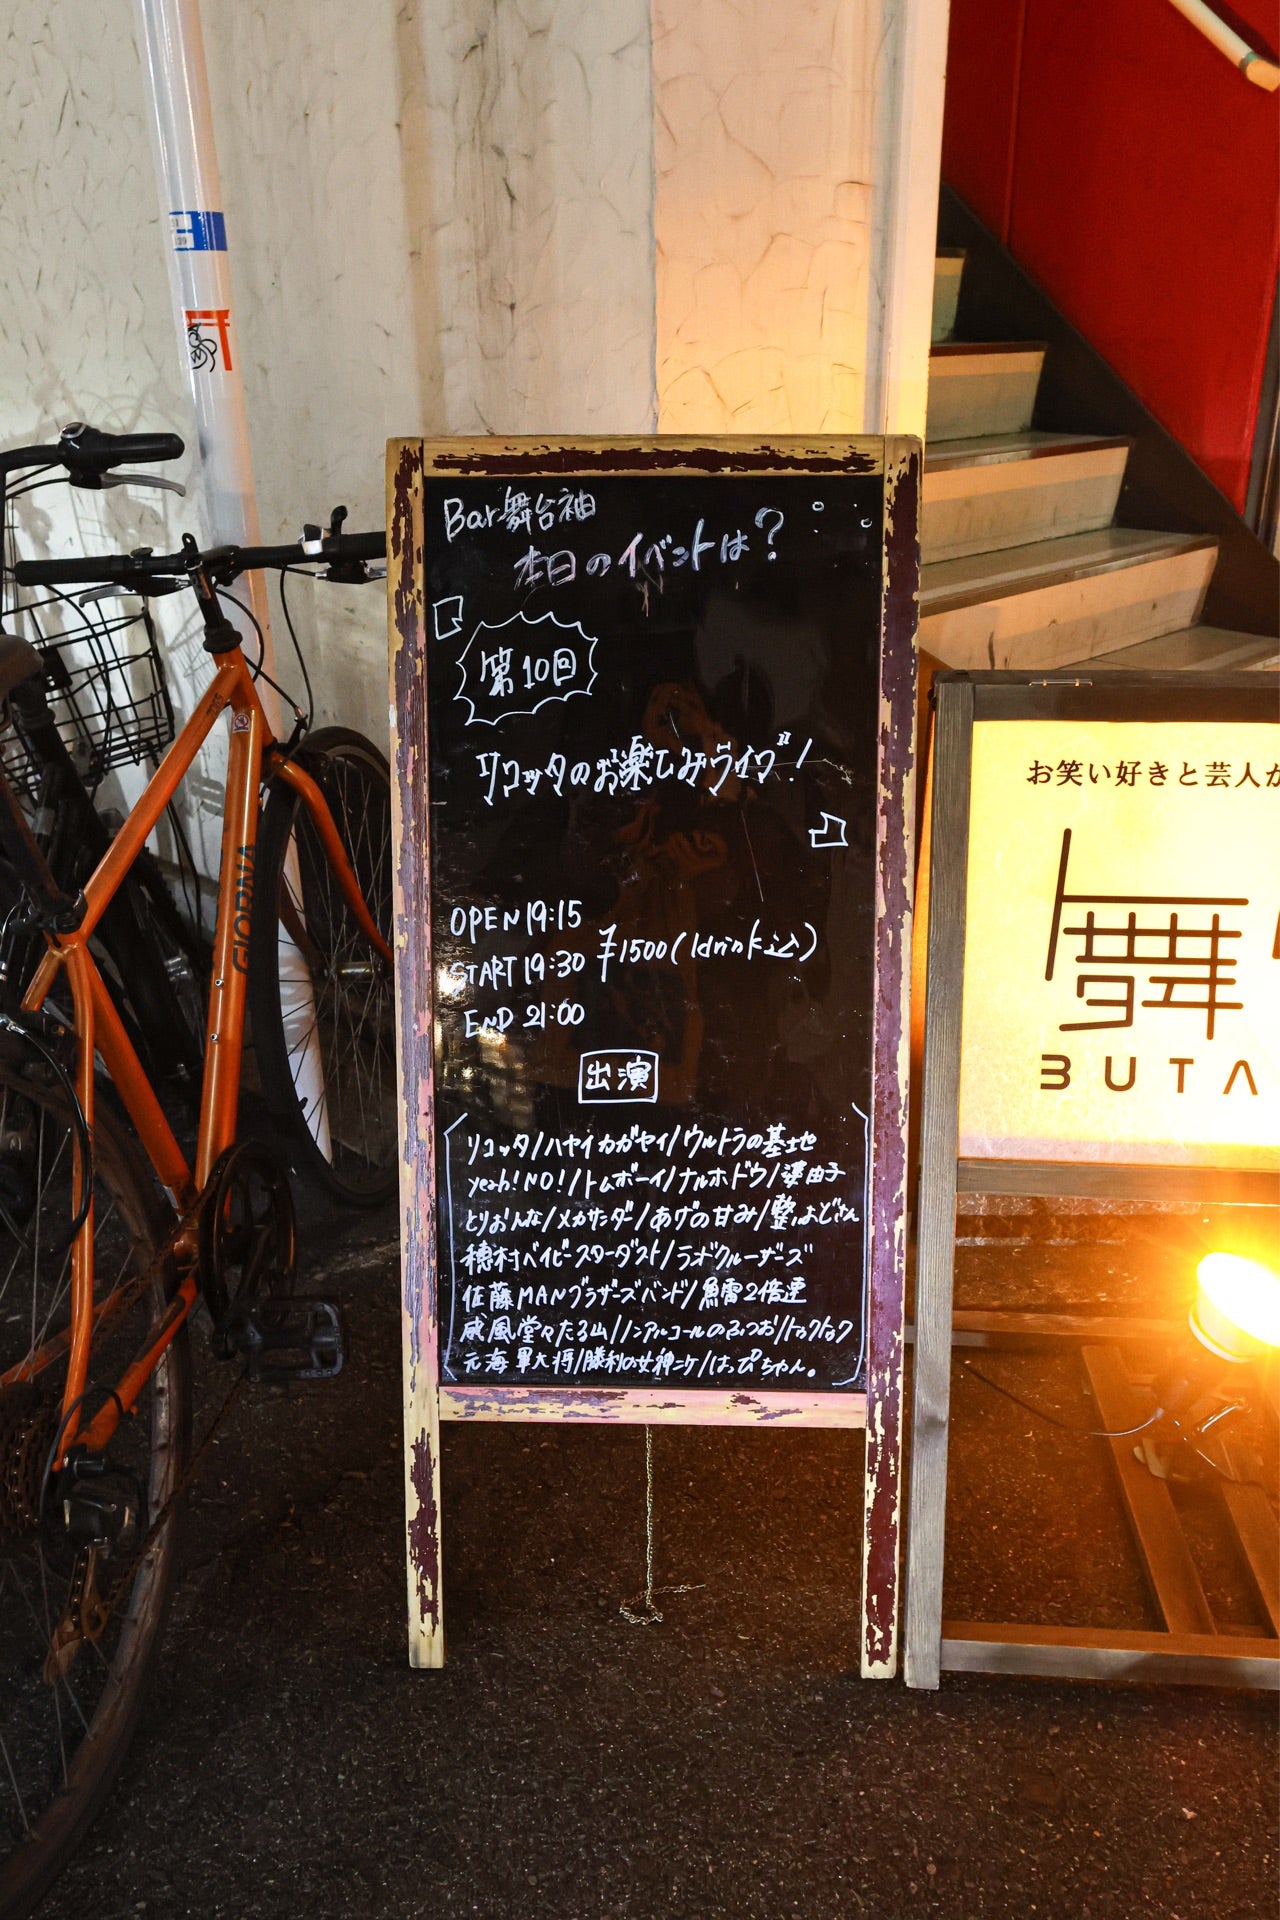 Bar舞台袖
本日のイベントは?
第10回
リコッタのお楽しみライブ!
OPEN 19:15
START 19:30 ¥1500(1drink込)
END 21:00
出演
リコッタ/ハヤイカガヤイ/ウルトラの基地
yeah!NO!/トムボーイ/ナルホドウ/澤由子
とりおんな/メカサンダー/あげの甘み/整いおじさん
穂村ベイビースターダスト/ラオクルーザーズ
佐藤MANブラザーズバンド/魚雷2倍速
威風堂々たる山/ノンアルコールのみつお/トゥクトゥク
元海軍大将/勝利の女神ニケ/はっぴちゃん。
お笑い好きと芸人が
舞
BUTA
GIORNA